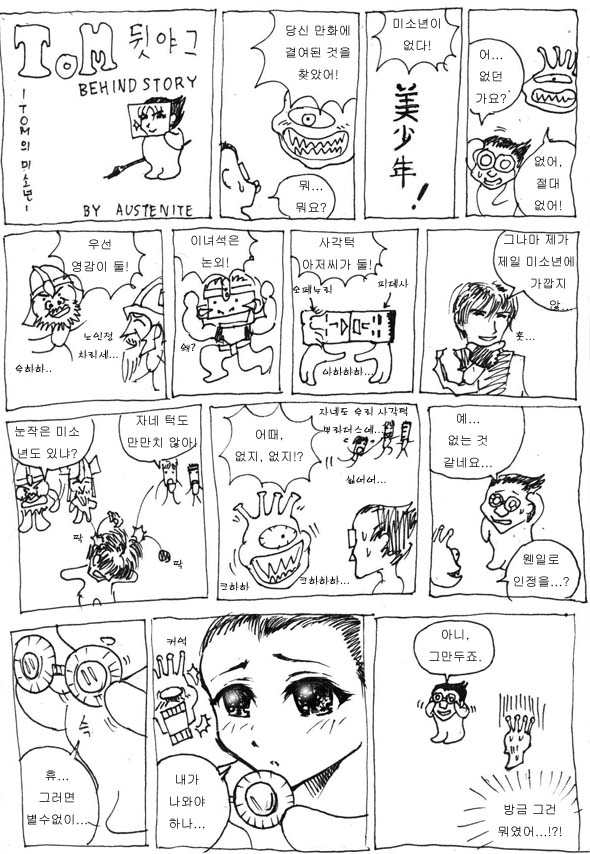 TOM 뒷야그
BEHIND STORY
-TOM의 미소년-
BY AUSTENITE
당신 만화에
결여된 것을
찾았어!
뭐...
뭐요?
미소년이
없다!
美少年!
어...
없던
가요?
없어,
절대
없어!
우선
영감이 둘!
노인정
차리세...
숙하하..
이녀석은
논외!
왜?
사각턱
아저씨가 둘!
피데사
아하하하...
그나마 제가
제일 미소년에
가깝지
않..
훗...
눈작은 미소
년도 있냐?
자네 턱도
만만치 않아!
딱
딱
어때,
없지, 없지!?
자네도 우리 사각턱
싫어어...
크하하
크하하하...
예...
없는 것
같네요...
웬일로
인정을...?
휴...
그러면
별수없이...
슥
커억
내가
나와야
하나...
아니,
그만두죠.
방금 그건
뭐였어...!?!